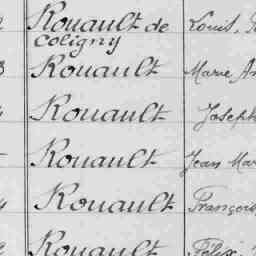 Rouault de Louis,
Coligny
Rouault Marie
Rouault Joseph
Rouault Jean Mar
Rouault François
Rouault Félix